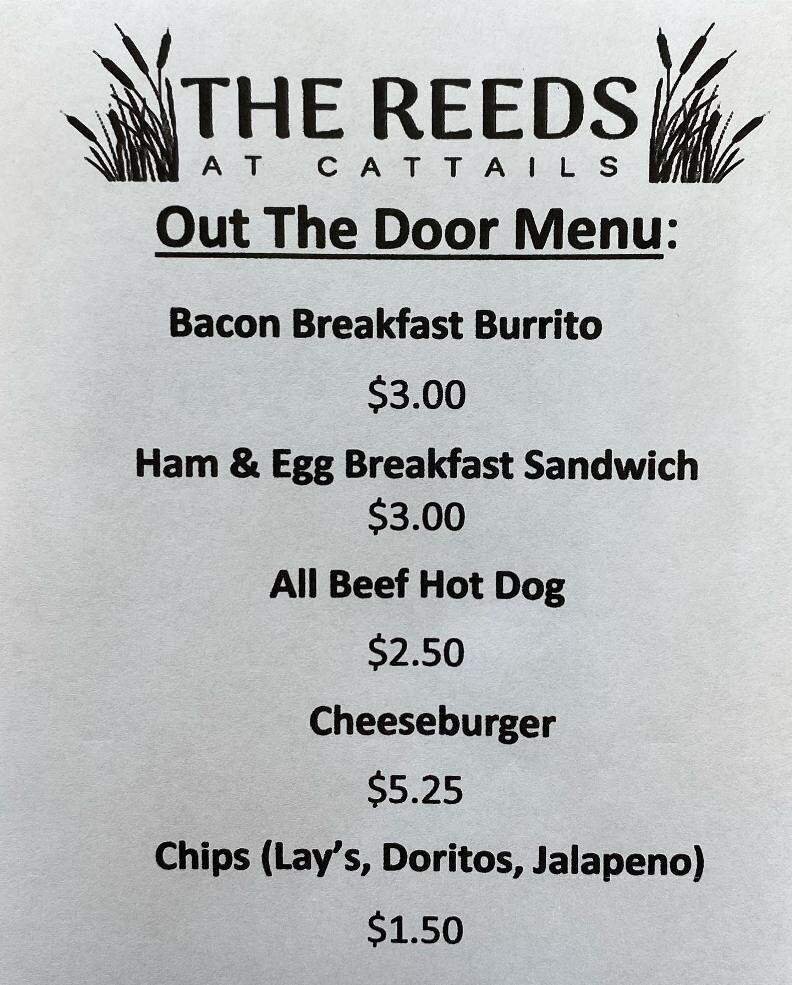 THE REEDS
AT CATTAILS
Out The Door Menu:
Bacon Breakfast Burrito
$3.00
Ham & Egg Breakfast Sandwich
$3.00
All Beef Hot Dog
$2.50
Cheeseburger
$5.25
Chips (Lay’s, Doritos, Jalapeno)
$1.50